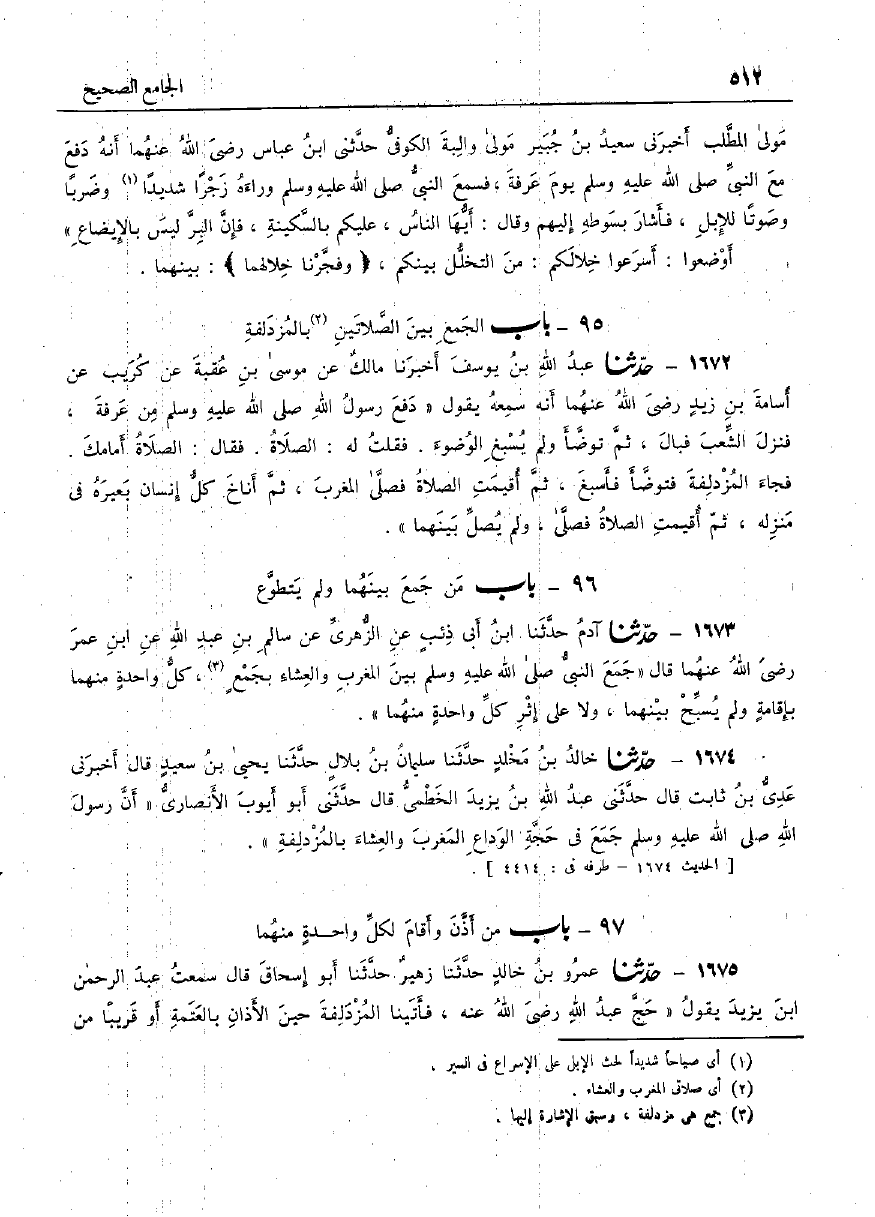 ٥١٢
الجامع الصحيح
مَولىٰ المطَّلب أخبرَنى سعيدُ بنُ جُبَير مَولىٰ والِبةَ الكوفىُّ حدَّثنى ابنُ عباس رضىَ اللهُ عنهُما أنهُ دَفعَ
معَ النبىِّ صلى الله عليهِ وسلم يومَ عَرفةَ ، فسمعَ النبىُّ صلى الله عليهِ وسلم وراءَهُ زَجْرًا شديدًا (١) وضَربًا
وصَوتًا للإبلِ ، فأشارَ بسَوطهِ إليهم وقال : أيُّها الناسُ ، عليكم بالسَّكينةِ ، فإنَّ البِرَّ ليسَ بالإيضاعِ »
أوْضعوا : أسرَعوا خِلالَكم : منَ التخلُّل بينكم ، ﴿ وفجَّرْنا خِلالهما ﴾ : بينهما .
٩٥ – باب الجَمعِ بينَ الصَّلاتَينِ (٢) بالمُزدَلفةِ
١٦٧٢ – حدّثنا عبدُ اللهِ بنُ يوسفَ أخبرَنا مالكٌ عن موسىٰ بنِ عُقبةَ عن كُرَيب عن
أسامةَ بنِ زيدٍ رضىَ اللهُ عنهُما أنه سمِعهُ يقول « دَفعَ رسولُ اللهِ صلى الله عليهِ وسلم مِن عَرفةَ ،
فنزلَ الشِّعبَ فبالَ ، ثمَّ توضَّأَ ولم يُسْبغِ الوُضوءَ . فقلتُ له : الصلاةُ . فقال : الصلَاةُ أمامكَ .
فجاءَ المُزْدلِفةَ فتوضَّأَ فأسبغَ ، ثمَّ أُقيمَتِ الصلاةُ فصلَّىٰ المغربَ ، ثمَّ أناخَ كلُّ إنسان بَعيرَهُ فى
مَنزِله ، ثمّ أُقيمتِ الصلاةُ فصلَّىٰ ، ولم يُصلِّ بَينَهما » .
٩٦ – باب مَن جَمعَ بينَهُما ولم يَتطوَّع
١٦٧٣ – حدّثنا آدمُ حدَّثَنا ابنُ أبى ذِئبٍ عنِ الزُّهرىِّ عن سالمِ بنِ عبدِ اللهِ عنِ ابنِ عمرَ
رضىَ اللهُ عنهُما قال « جَمَعَ النبىُّ صلىٰ الله عليهِ وسلم بينَ المغربِ والعِشاءِ بجَمْعٍ (٣) ، كلُّ واحدةٍ منهما
بإقامةٍ ولم يُسبِّحْ بيْنهما ، ولا على إثْرِ كلِّ واحدةٍ منهُما » .
١٦٧٤ – حدّثنا خالدُ بنُ مَخْلدٍ حدَّثَنا سليمانُ بنُ بلالٍ حدَّثَنا يحيىٰ بنُ سعيدٍ قال أخبرَنى
عَدِىُّ بنُ ثابت قال حدَّثَنى عبدُ اللهِ بنُ يزيدَ الخَطْمىُّ قال حدَّثَنى أبو أيوبَ الأنصارىُّ « أنَّ رسولَ
اللهِ صلى الله عليهِ وسلم جَمَعَ فى حَجَّةِ الوَداعِ المَغربَ والعِشاءَ بالمُزْدلِفةِ » .
[ الحديث ١٦٧٤ – طرفه فى : ٤٤١٤ ] .
٩٧ – باب من أذَّنَ وأقامَ لكلِّ واحدةٍ منهُما
١٦٧٥ – حدّثنا عمرُو بنُ خالدٍ حدَّثَنا زهيرٌ حدَّثَنا أبو إسحاقَ قال سمعتُ عبدَ الرحمنِ
ابنَ يزيدَ يقولُ « حَجَّ عبدُ اللهِ رضىَ اللهُ عنه ، فأتَينا المُزْدَلِفةَ حينَ الأذانِ بالعَتَمةِ أو قَريبًا من
(١) أى صياحاً شديداً لحث الإبل على الإسراع فى السير .
(٢) أى صلاتى المغرب والعشاء .
(٣) جمع هى مزدلفة ، وسبق الإشارة إليها .